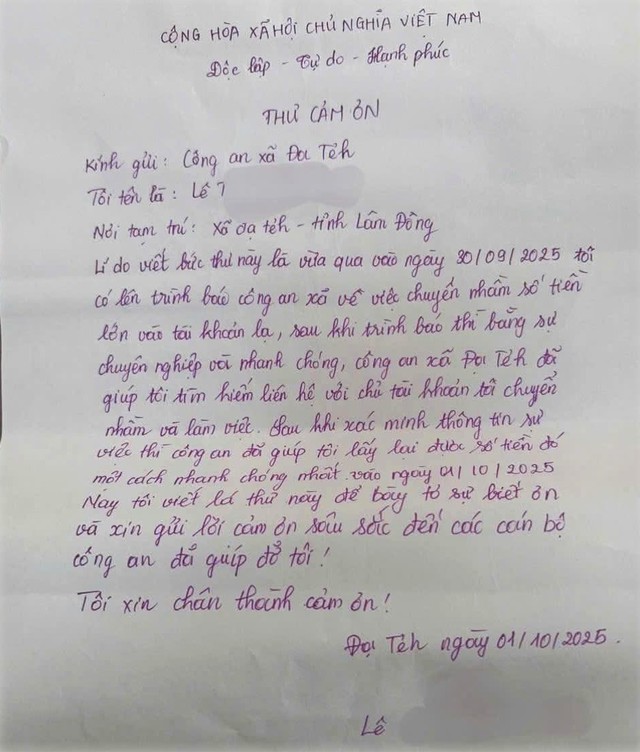 CỘNG HÒA XÃ HỘI CHỦ NGHĨA VIỆT NAM
Độc lập - Tự do - Hạnh phúc
THƯ CẢM ƠN
Kính gửi: Công an xã Đạ Tẻh
Tôi tên là: Lê T
Nơi tạm trú: Xã Đạ tẻh - tỉnh Lâm Đồng
Lí do viết bức thư này là vừa qua vào ngày 30/09/2025 tôi
có lên trình báo công an xã về việc chuyển nhầm số tiền
lớn vào tài khoản lạ, sau khi trình báo thì bằng sự
chuyên nghiệp và nhanh chóng, công an xã Đạ Tẻh đã
giúp tôi tìm hiểm liên hệ với chủ tài khoản tôi chuyển
nhầm và làm việc. Sau khi xác minh thông tin sự
việc thì công an đã giúp tôi lấy lại được số tiền đó
một cách nhanh chóng nhất. vào ngày 01/10/2025
Nay tôi viết lá thư này để bày tỏ sự biết ơn
và xin gửi lời cảm ơn sâu sắc đến các cán bộ
công an đã giúp đỡ tôi!
Tôi xin chân thành cảm ơn!
Đạ Tẻh ngày 01/10/2025.
Lê